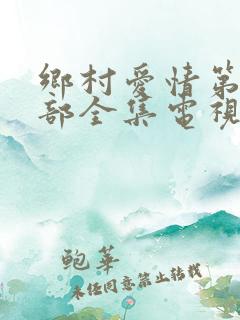 鄉村愛情第
部全集電視
鮑華
未經同意禁止轉載